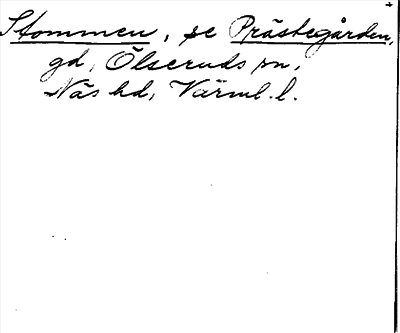 Stommen, se Prästegården,
gd, Ölseruds sn,
Näs hd, Värml. l.